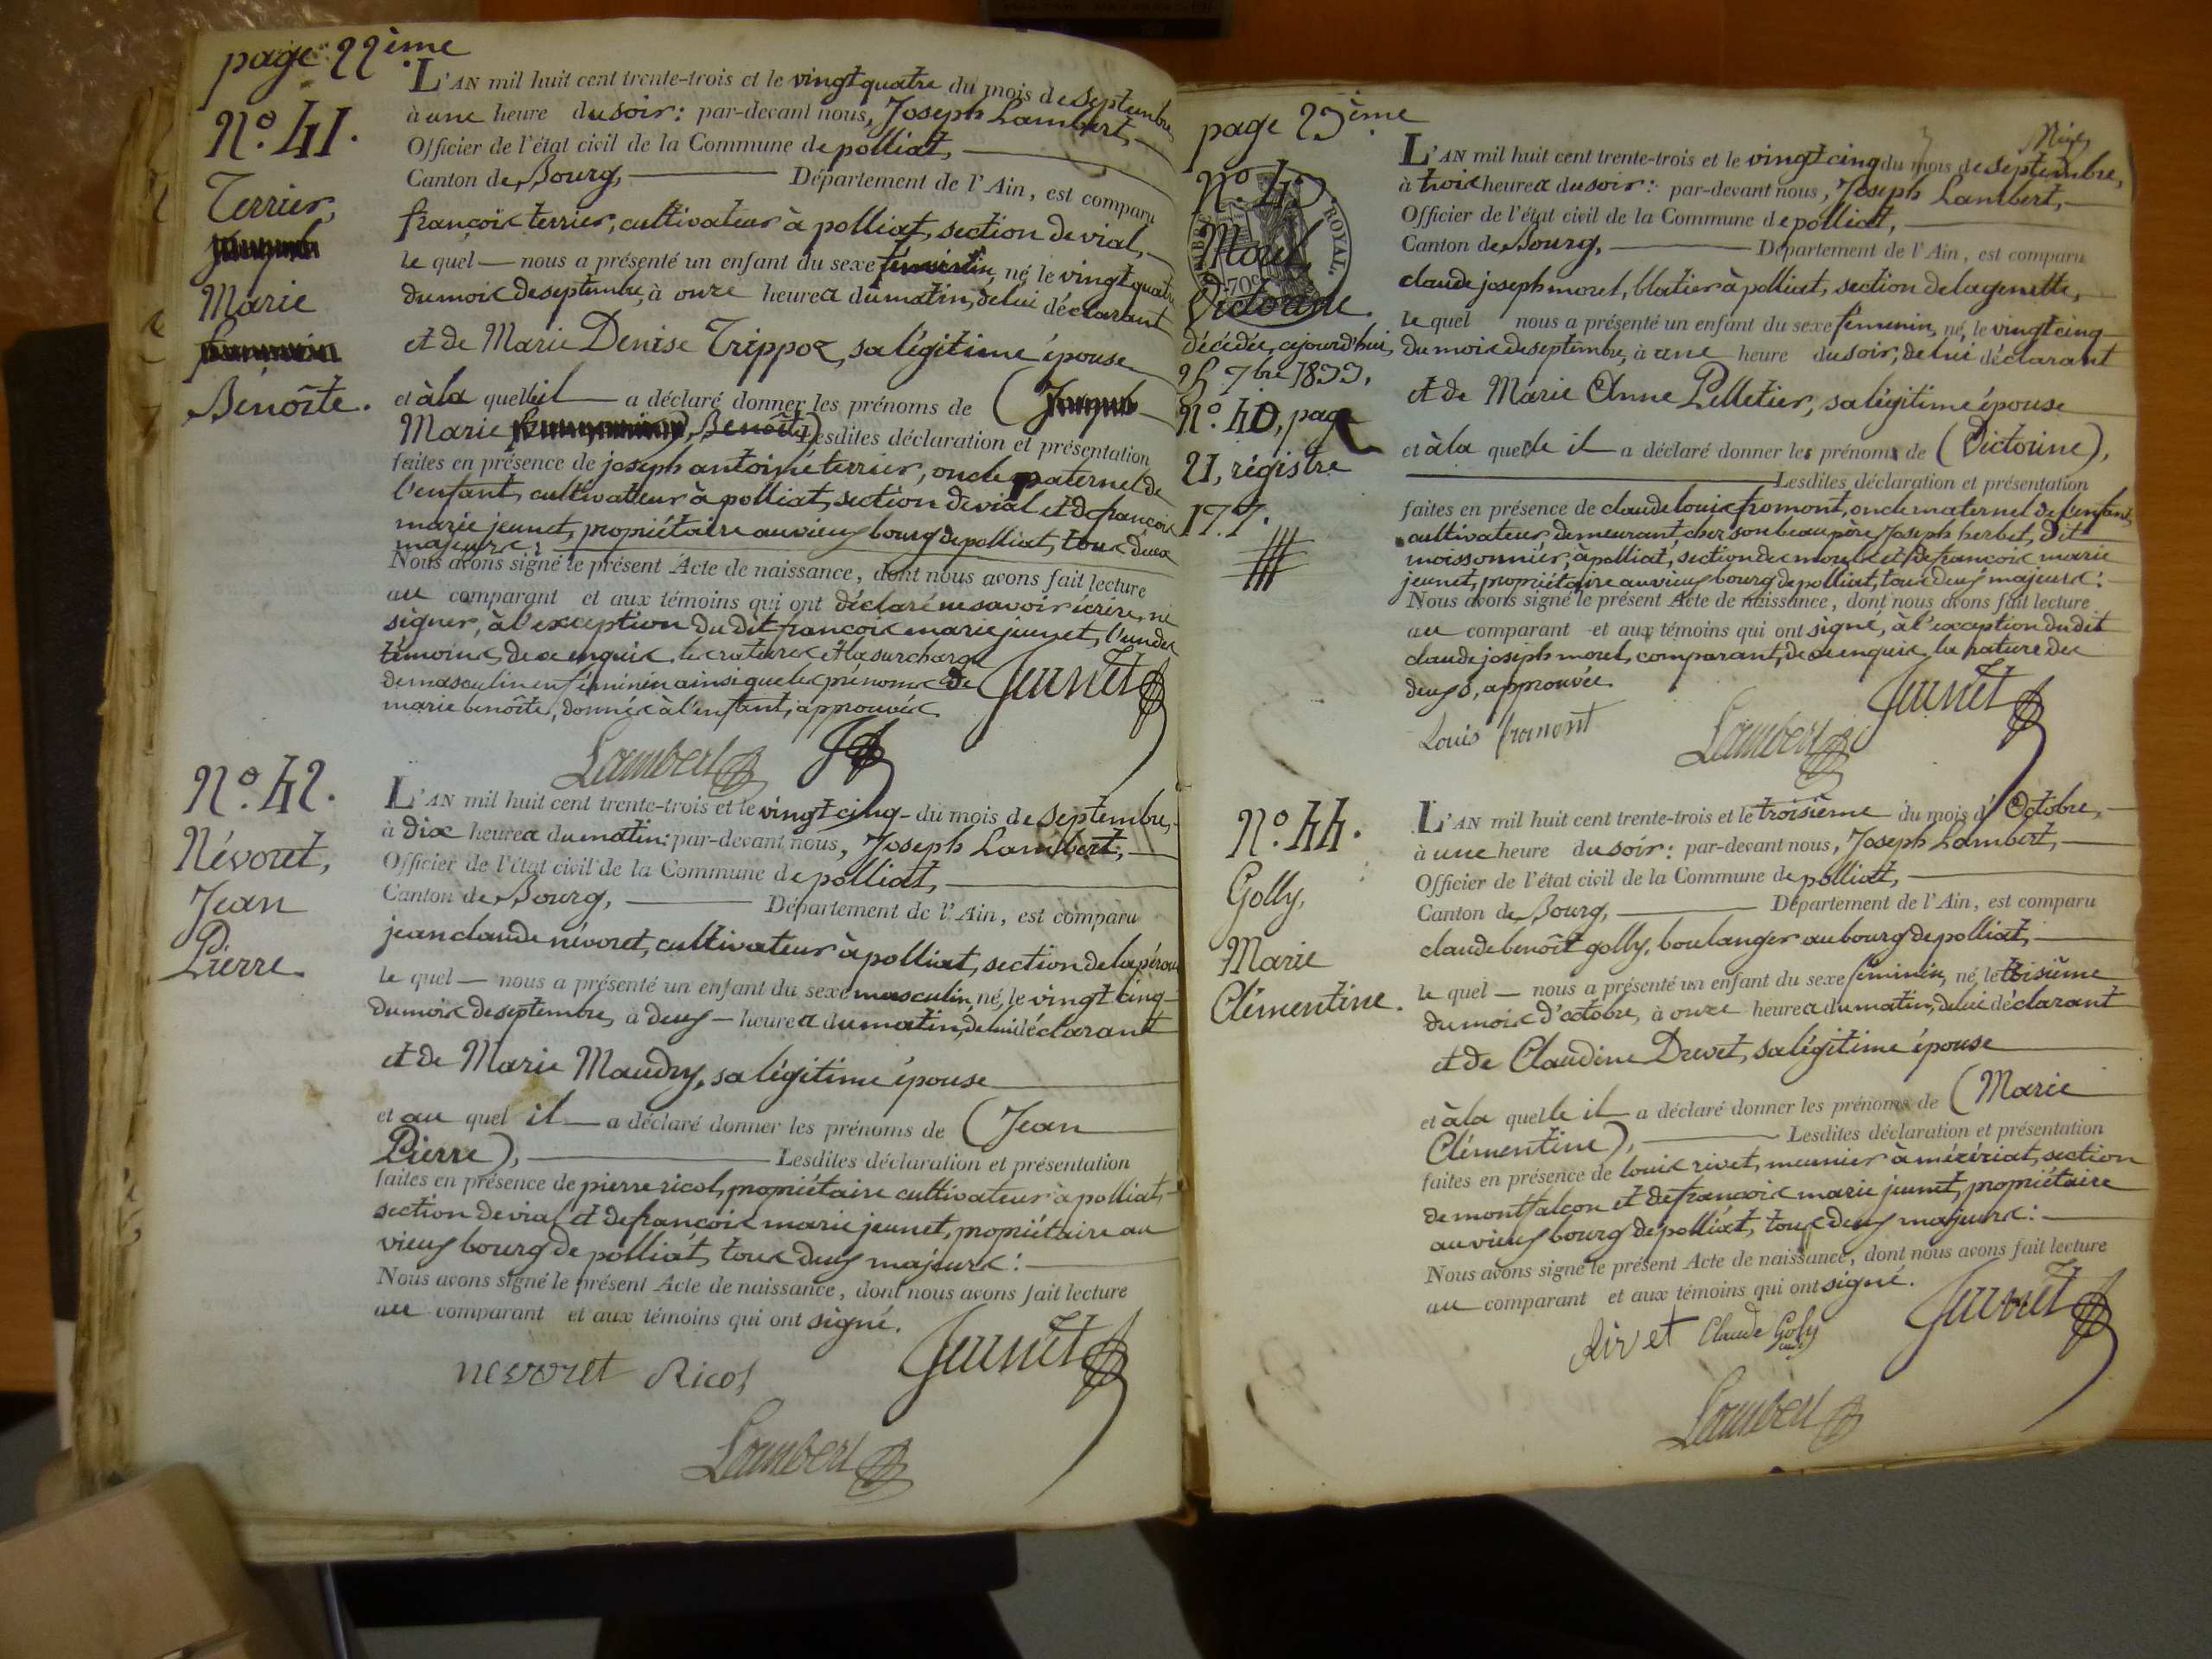 page 22ème
N° 41.
Terrier,
Marie
Benoîte.
L'AN mil huit cent trente-trois et le vingt quatre du mois de septembre
à une heure du soir: par-devant nous, Joseph Lambert,
Officier de l'état civil de la Commune de polliat,
Canton de Bourg, Département de l'Ain, est comparu
françois terrier, cultivateur à polliat, section de vial,
le quel nous a présenté un enfant du sexe féminin, né, le vingt quatre
du mois de septembre, à onze heures du matin, de lui déclarant
et de Marie Denise Trippoz, sa légitime épouse
et à la quelle il a déclaré donner les prénoms de (
Marie Benoîte) Lesdites déclaration et présentation
faites en présence de joseph antoine terrier, oncle paternel de
l'enfant, cultivateur à polliat, section de vial et de françois
marie jeunet, propriétaire au vieux bourg de polliat, tous deux
majeurs:
Nous avons signé le présent Acte de naissance, dont nous avons fait lecture
au comparant et aux témoins qui ont déclaré ne savoir écrire, ni
signer, à l'exception du dit françois marie jeunet, l'un des
témoins, de ce enquis, les ratures et la surcharge
de masculin en féminin ainsi que les prénoms de
marie benoîte, donnés à l'enfant, approuvés
Jeunet
Lambert
N° 42.
Névoret,
Jean
Pierre.
L'AN mil huit cent trente-trois et le vingt cinq du mois de septembre,
à dix heures du matin: par-devant nous, Joseph Lambert,
Officier de l'état civil de la Commune de polliat,
Canton de Bourg, Département de l'Ain, est comparu
jean claude névoret, cultivateur à polliat, section de la pérou
le quel nous a présenté un enfant du sexe masculin, né, le vingt cinq
du mois de septembre, à deux heures du matin, de lui déclarant
et de Marie Maudry, sa légitime épouse
et au quel il a déclaré donner les prénoms de (Jean
Pierre), Lesdites déclaration et présentation
faites en présence de pierre ricol, propriétaire cultivateur à polliat,
section de vial et de françois marie jeunet, propriétaire au
vieux bourg de polliat, tous deux majeurs:
Nous avons signé le présent Acte de naissance, dont nous avons fait lecture
au comparant et aux témoins qui ont signé.
nevoret Ricol Jeunet
Lambert
page 23ème
N° 43
Morel,
Victorine.
décédée, cejourd'hui,
25 7bre 1833.
N° 40, page
21, régistre
177.
ROYAL
70c
L'AN mil huit cent trente-trois et le vingt cinq du mois de septembre,
à trois heures du soir: par-devant nous, Joseph Lambert,
Officier de l'état civil de la Commune de polliat,
Canton de Bourg, Département de l'Ain, est comparu
claude joseph morel, blatier à polliat, section de la genette,
le quel nous a présenté un enfant du sexe féminin, né, le vingt cinq
du mois de septembre, à une heure du soir, de lui déclarant
et de Marie Anne Pelletier, sa légitime épouse
et à la quelle il a déclaré donner les prénoms de (Victorine),
Lesdites déclaration et présentation
faites en présence de claude louis fromont, oncle maternel de l'enfant
cultivateur demeurant chez son beau père Joseph herbet, dit
moissonnier, à polliat, section des mourbes et de françois marie
jeunet, propriétaire au vieux bourg de polliat, tous deux majeurs:
Nous avons signé le présent Acte de naissance, dont nous avons fait lecture
au comparant et aux témoins qui ont signé, à l'exception du dit
claude joseph morel, comparant, de ce enquis, la rature des
deux s, approuvée.
Louis fromont Jeunet
Lambert
N° 44.
Golly,
Marie
Clémentine.
L'AN mil huit cent trente-trois et le troisième du mois d'Octobre,
à une heure du soir: par-devant nous, Joseph Lambert,
Officier de l'état civil de la Commune de polliat,
Canton de Bourg, Département de l'Ain, est comparu
claude benoît golly, boulanger au bourg de polliat,
le quel nous a présenté un enfant du sexe féminin, né, le troisième
du mois d'octobre, à onze heures du matin, de lui déclarant
et de Claudine Drevet, sa légitime épouse
et à la quelle il a déclaré donner les prénoms de (Marie
Clémentine), Lesdites déclaration et présentation
faites en présence de louis rivet, meunier à mézériat, section
de montfalcon et de françois marie jeunet, propriétaire
au vieux bourg de polliat, tous deux majeurs:
Nous avons signé le présent Acte de naissance, dont nous avons fait lecture
au comparant et aux témoins qui ont signé.
Rivet Claude Goly Jeunet
Lambert